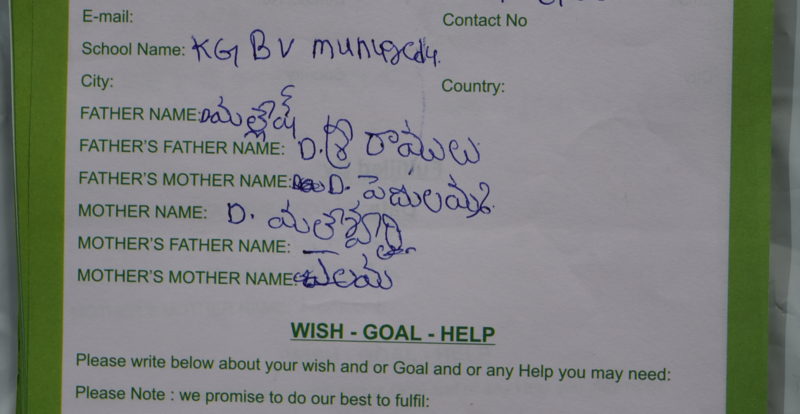 E-mail: Contact No
School Name: KGBV
City: Country:
FATHER NAME: మల్లేష్
FATHER'S FATHER NAME: D. శ్రీ రాములు
FATHER'S MOTHER NAME: D.
MOTHER NAME: D.
MOTHER'S FATHER NAME:
MOTHER'S MOTHER NAME:
WISH - GOAL - HELP
Please write below about your wish and or Goal and or any Help you may need:
Please Note : we promise to do our best to fulfil: